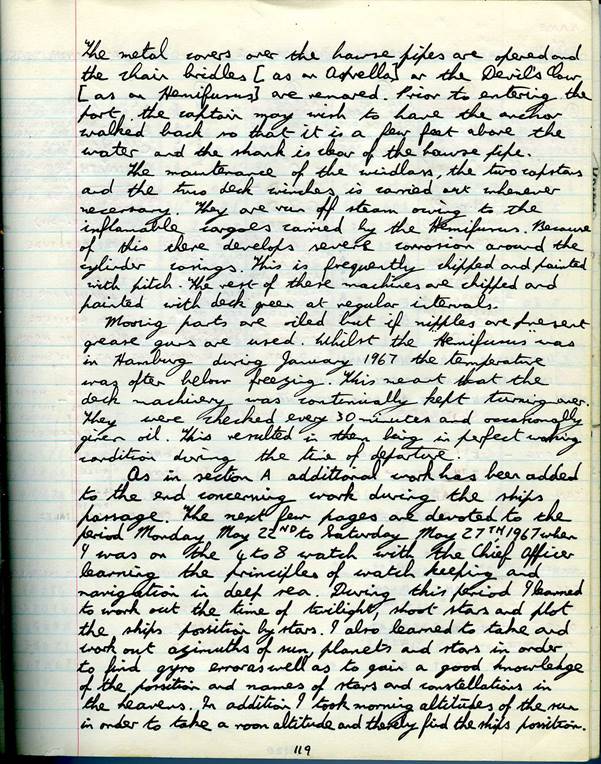 The metal covers over the hawse pipes are opened and
the chain bridles [as on Asprella] or the Devil's Claw
[as on Hemifusus] are removed. Prior to entering the
port, the captain may wish to have the anchor
walked back so that it is a few feet above the
water and the shank is clear of the hawse pipe.
The maintenance of the windlass, the two capstans
and the two deck winches is carried out whenever
necessary. They are run off steam owing to the
inflamable cargoes carried by the Hemifusus. Because
of this there develops severe corrosion around the
cylinder casings. This is frequently chipped and painted
with pitch. The rest of these machines are chipped and
painted with deck green at regular intervals.
Moving parts are oiled but if nipples are present
grease guns are used. Whilst the Hemifusus was
in Hamburg during January 1967 the temperature
was often below freezing. This meant that the
deck machinery was continually kept turning over.
They were checked every 30 minutes and occasionally
given oil. This resulted in them being in perfect working
condition during the time of departure.
As in section A additional work has been added
to the end concerning work during the ships
passage. The next few pages are devoted to the
period Monday May 22ND to Saturday May 27TH, 1967 when
I was on the 4 to 8 watch with the Chief Officer
learning the principles of watch keeping and
navigation in deep sea. During this period I learned
to work out the time of twilight, shoot stars and plot
the ships possition by stars. I also learned to take and
work out azimuths of sun, planets and stars in order
to find gyro error as well as to gain a good knowledge
of the possition and names of stars and constellations in
the heavens. In addition I took morning altitudes of the sun
in order to take a noon altitude and thereby find the ships possition.
119